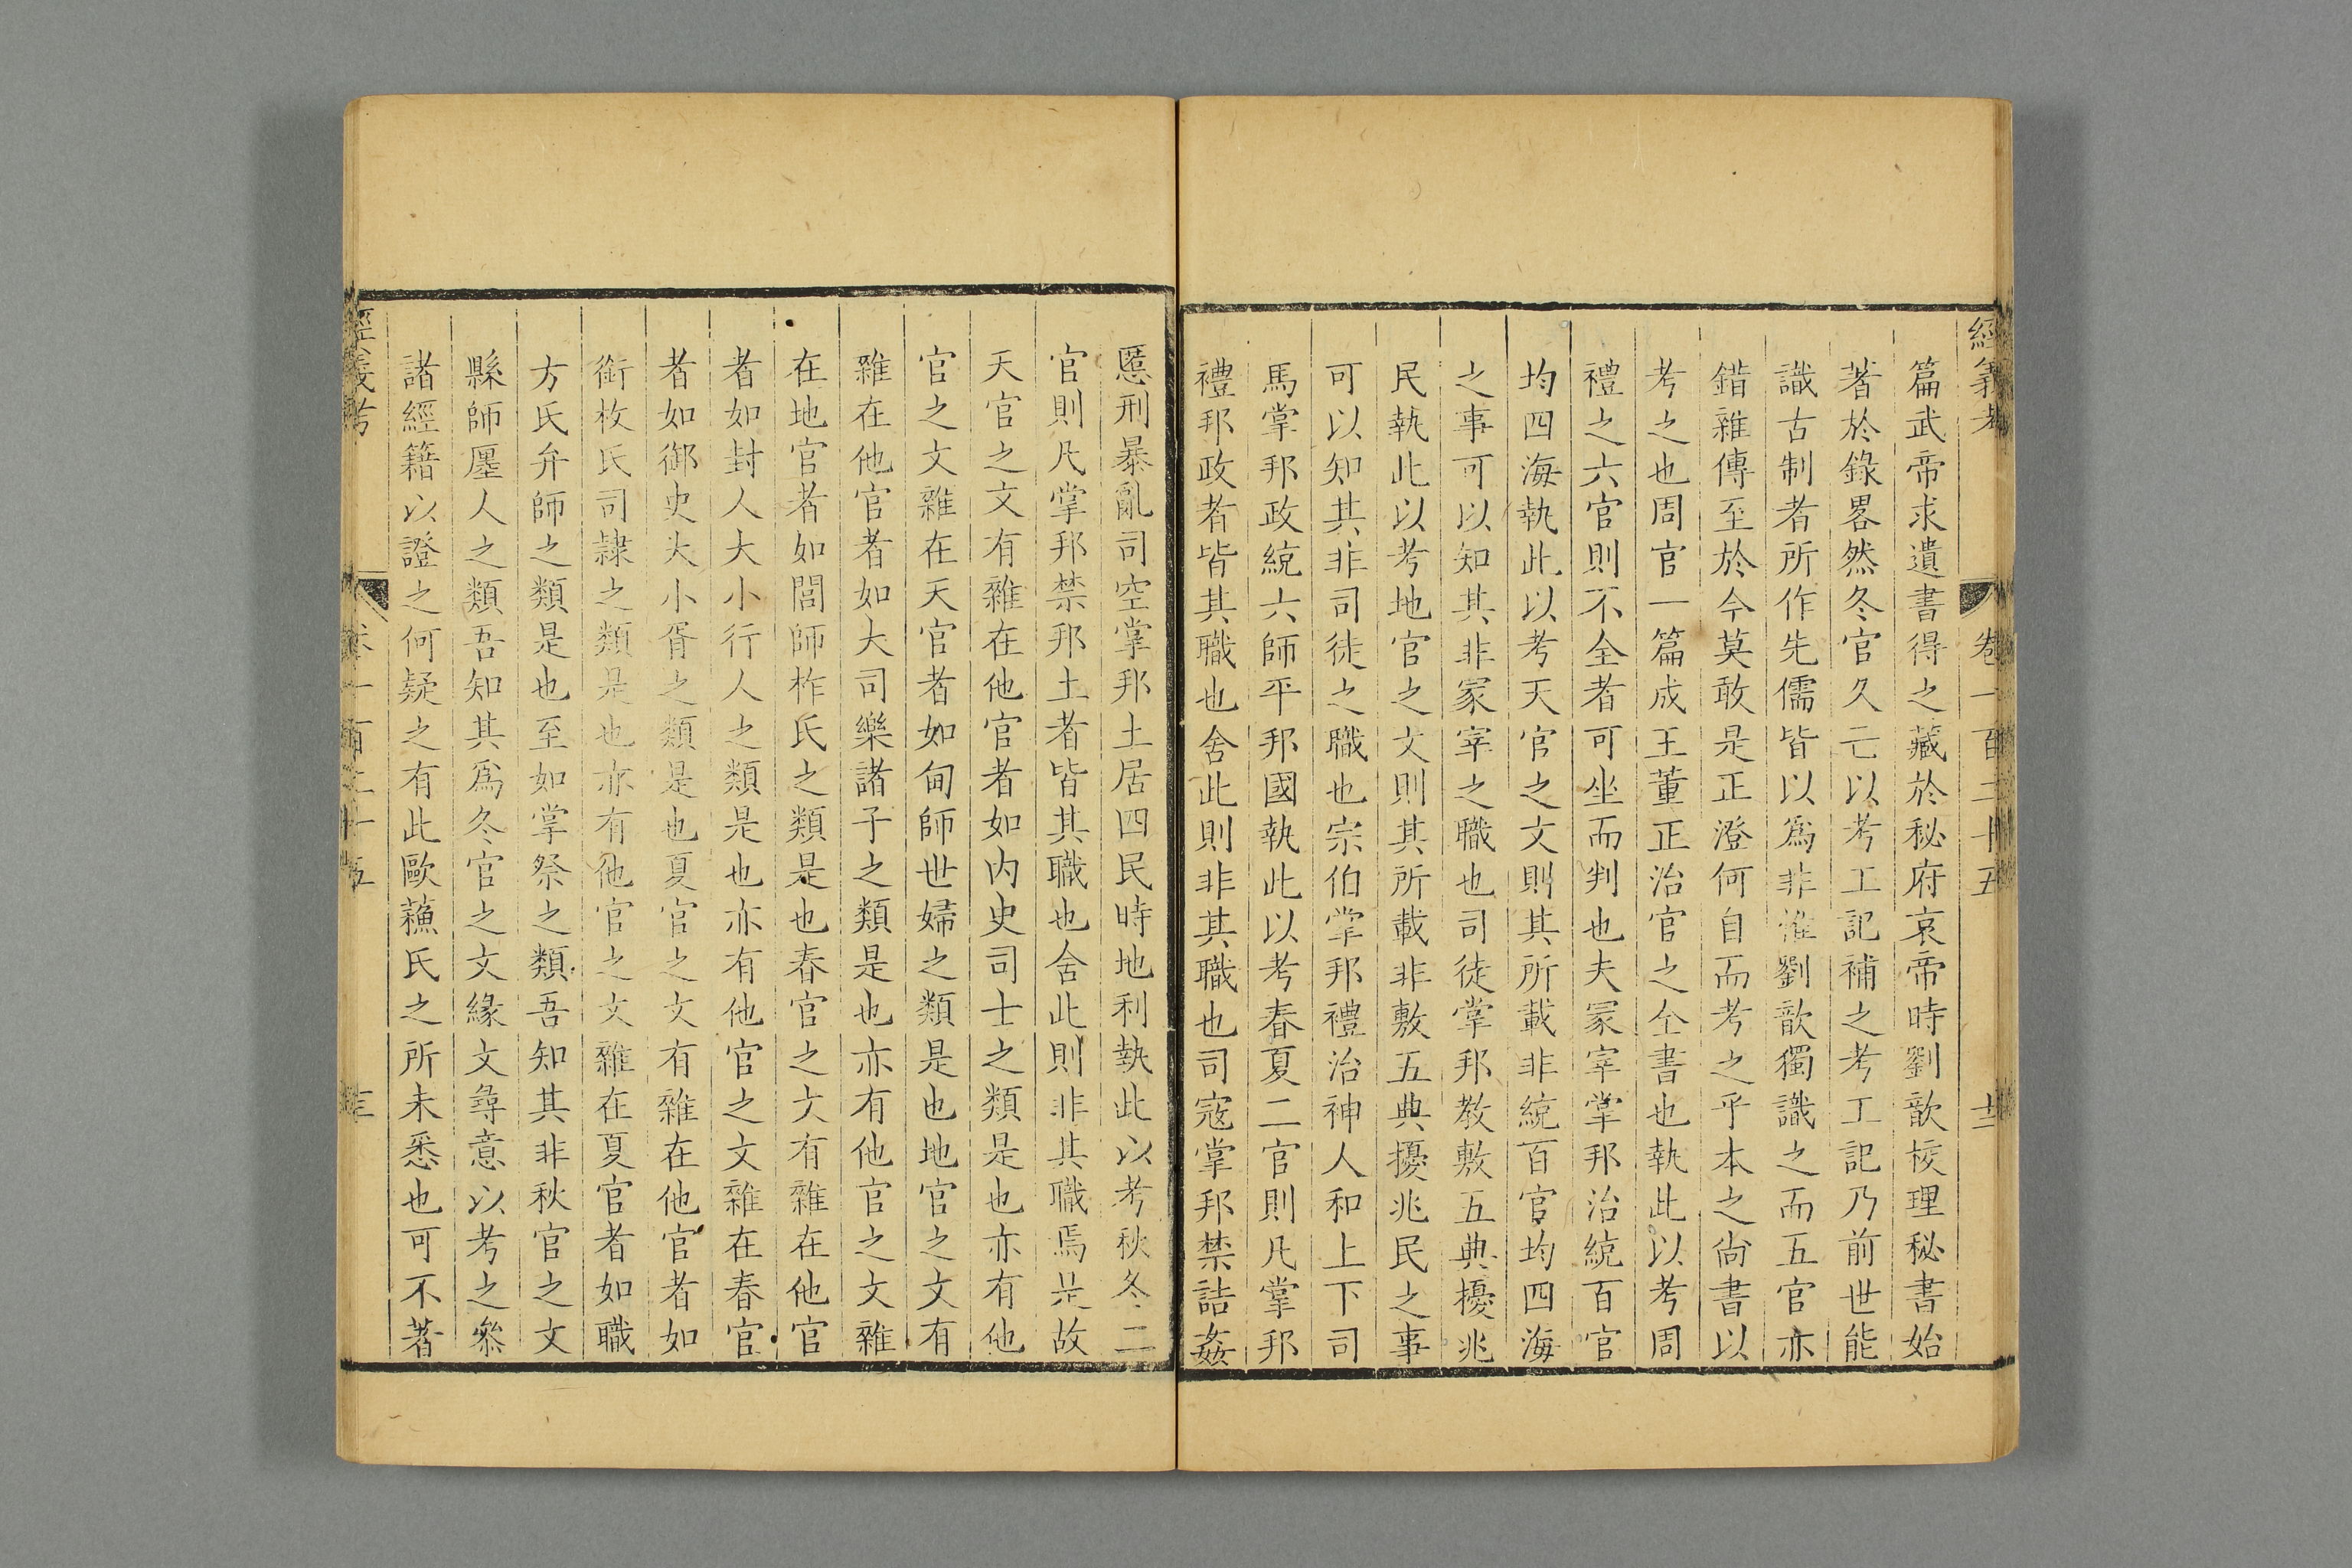 經義考 卷一百二十五 十二
篇武帝求遺書得之藏於秘府哀帝時劉歆校理秘書始
著於錄畧然冬官久亡以考工記補之考工記乃前世能
識古制者所作先儒皆以爲非惟劉歆獨識之而五官亦
錯雜傳至於今莫敢是正澄何自而考之乎本之尙書以
考之也周官一篇成王董正治官之全書也執此以考周
禮之六官則不全者可坐而判也夫冢宰掌邦治統百官
均四海執此以考天官之文則其所載非統百官均四海
之事可以知其非冢宰之職也司徒掌邦教敷五典擾兆
民執此以考地官之文則其所載非敷五典擾兆民之事
可以知其非司徒之職也宗伯掌邦禮治神人和上下司
馬掌邦政統六師平邦國執此以考春夏二官則凡掌邦
禮邦政者皆其職也舍此則非其職也司寇掌邦禁詰姦
慝刑暴亂司空掌邦土居四民時地利執此以考秋冬二
官則凡掌邦禁邦土者皆其職也舍此則非其職焉是故
天官之文有雜在他官者如内史司士之類是也亦有他
官之文雜在天官者如甸師世婦之類是也地官之文有
雜在他官者如大司樂諸子之類是也亦有他官之文雜
在地官者如閭師柞氏之類是也春官之文有雜在他官
者如封人大小行人之類是也亦有他官之文雜在春官
者如御史大小胥之類是也夏官之文有雜在他官者如
銜枚氏司隷之類是也亦有他官之文雜在夏官者如職
方氏弁師之類是也至如掌祭之類吾知其非秋官之文
縣師廛人之類吾知其爲冬官之文緣文尋意以考之叅
諸經籍以證之何疑之有此歐蘓氏之所未悉也可不著
經義考 卷一百二十五